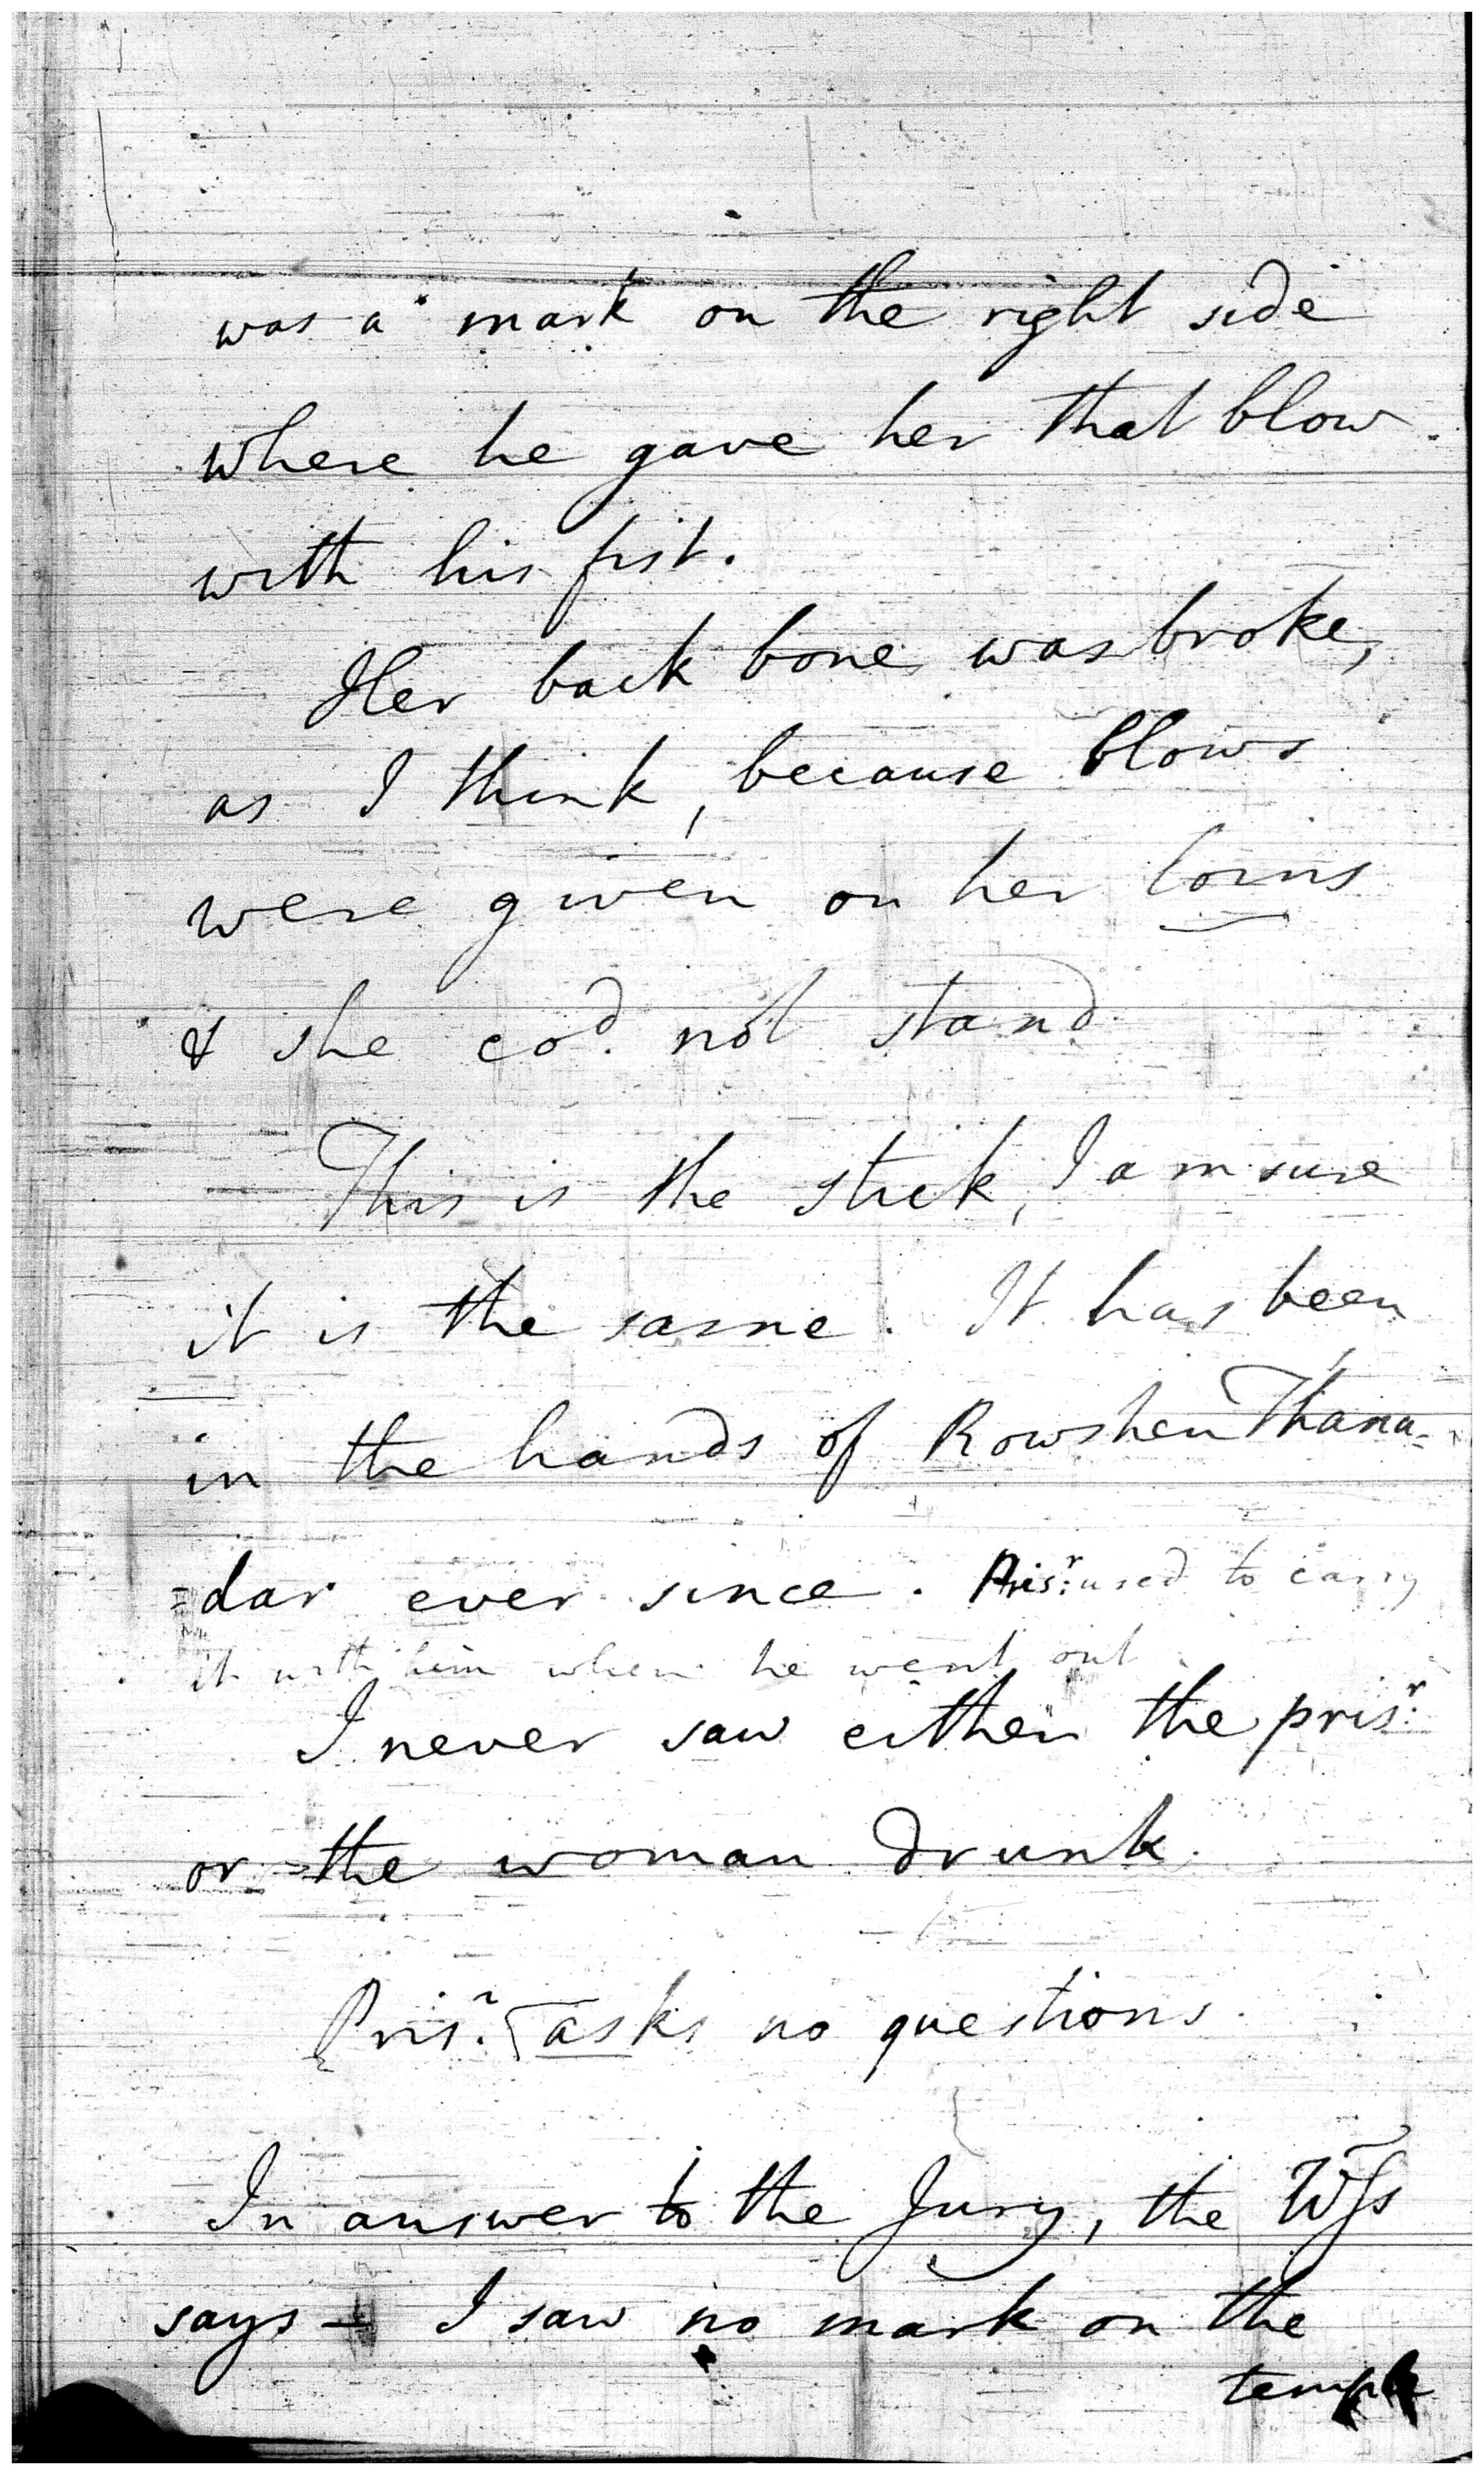 was a mark on the right side
where he gave her that blow
with his fist.
Her back bone was broke,
as I think, because blows
were given on her loins
& she cod. not stand
This is the stick, I am sure
it is the same. It has been
in the hands of Rowshen Thana-
=dar ever since. Prisr: used to carry
it with him when he went out
I never saw either the prisr:
or the woman drunk.
Prisr. asks no questions.
In answer to the Jury, the Wss
says – I saw no mark on the
temple